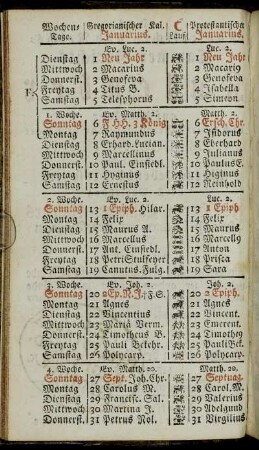 Wochen- Gregorianischer Kal. ☾ Protestantischen
Tage. Januarius. Lauf Januarius.
Ev. Luc. 2. Luc. 2.
Dienstag 1 Neu Jahr 1 Neu Jahr
Mittwoch 2 Macarius 2 Macari9
Donnerst. 3 Genofeva 3 Genofeva
F Freytag 4 Titus B. 4 Isabella
Samstag 5 Telesphorus 5 Simeon
1. Woche. Ev. Matth. 2. Matth. 2.
Sonntag 6 F. HH. 3 König 6 Ersch. Chr.
Montag 7 Raymundus 7 Isidorus
Dienstag 8 Erhard. Lucian. 8 Eberhard
Mittwoch 9 Marcellinus 9 Julianus
Donnerst. 10 Paul. Einsiedl. 10 PaulusE.
Freytag 11 Hyginus 11 Higinus
Samstag 12 Ernestus 12 Reinhold
2. Woche. Ev. Luc. 2. Luc. 2.
Sonntag 13 1 Epiph. Hilar. 13 1 Epiph
Montag 14 Felix 14 Felix
Dienstag 15 Maurus A. 15 Maurus
Mittwoch 16 Marcellus 16 Marcell9
Donnerst. 17 Ant. Einsiedl. 17 Anton
Freytag 18 Petri Stulfeyer 18 Prisca
Samstag 19 Canutus. Fulg. 19 Sara
3. Woche. Ev. Joh. 2. Joh. 2.
Sonntag 20 2 Ep. N. J. F.S. 20 2 Epiph.
Montag 21 Agnes 21 Agnes
Dienstag 22 Vincentius 22 Vincent.
Mittwoch 23 Mariä Verm. 23 Emerent.
Donnerst. 24 Timotheus B. 24 Timothe9
Freytag 25 Pauli Bekehr. 25 PauliBek.
Samstag 26 Polycarp. 26 Polycarp.
4. Woche. Ev. Matth. 20. Matth. 20.
Sonntag 27 Sept. Joh. Chr. 27 Septuag.
Montag 28 Carolus M. 28 Carol. M.
Dienstag 29 Francisc. Sal. 29 Valerius
Mittwoch 30 Martina J. 30 Adelgund
Donnerst. 31 Petrus Nol. 31 Virgilius